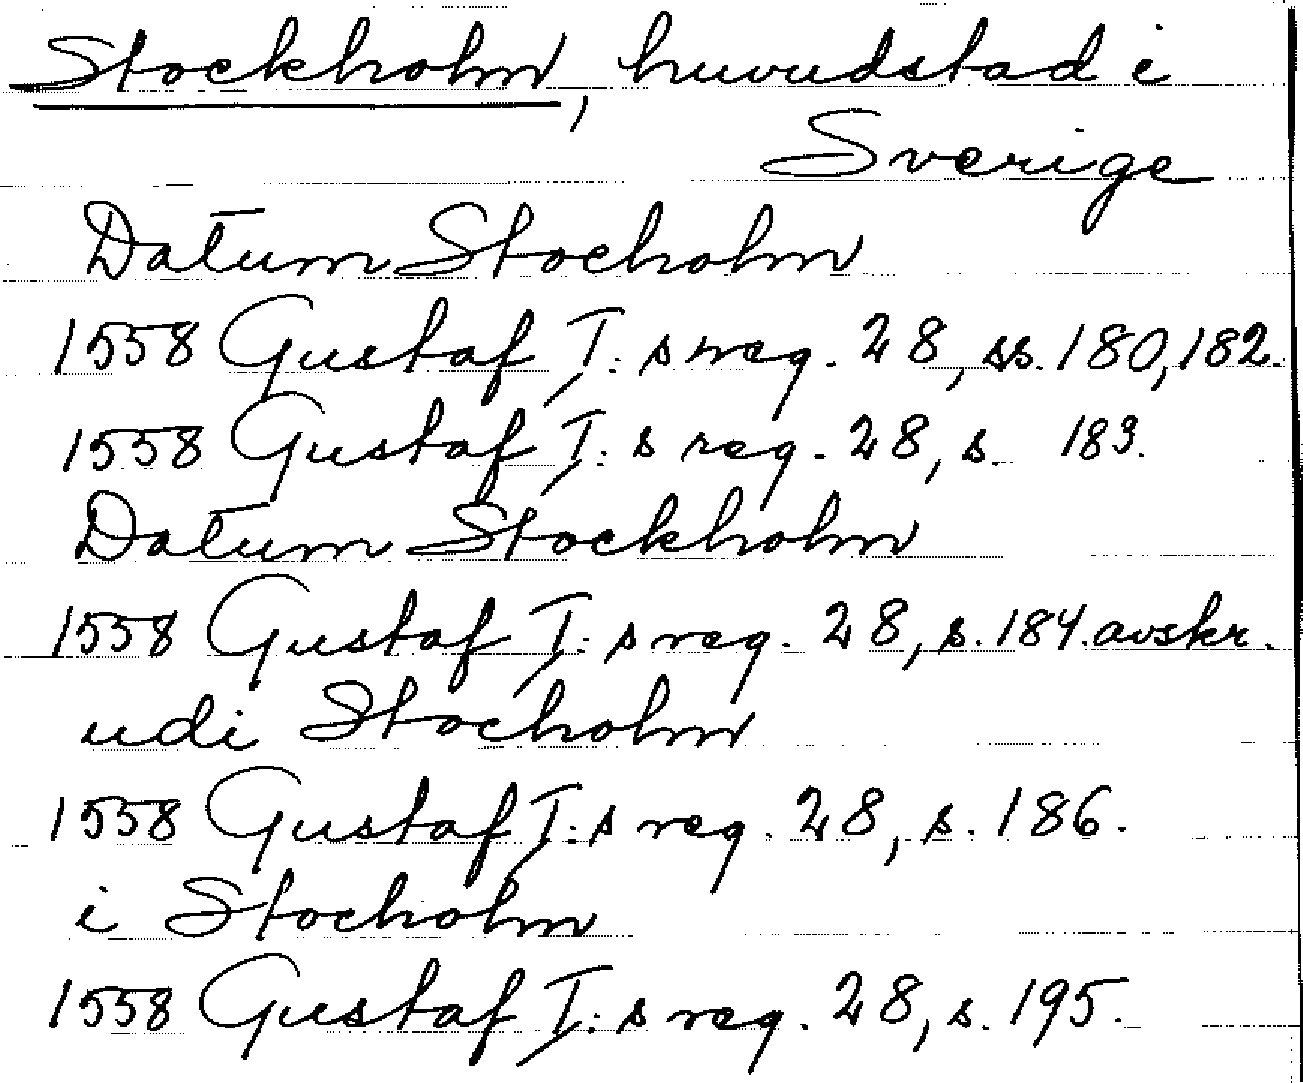 Stockholm, huvudstad i
Sverige
Datum Stocholm
1558 Gustaf I:s reg. 28, ss. 180, 182.
1558 Gustaf I:s reg. 28, s. 183.
Datum Stockholm
1558 Gustaf I:s reg. 28, s. 184. avskr.
udi Stocholm
1558 Gustaf I:s reg. 28, s. 186.
i Stocholm
1558 Gustaf I:s reg. 28, s. 195.